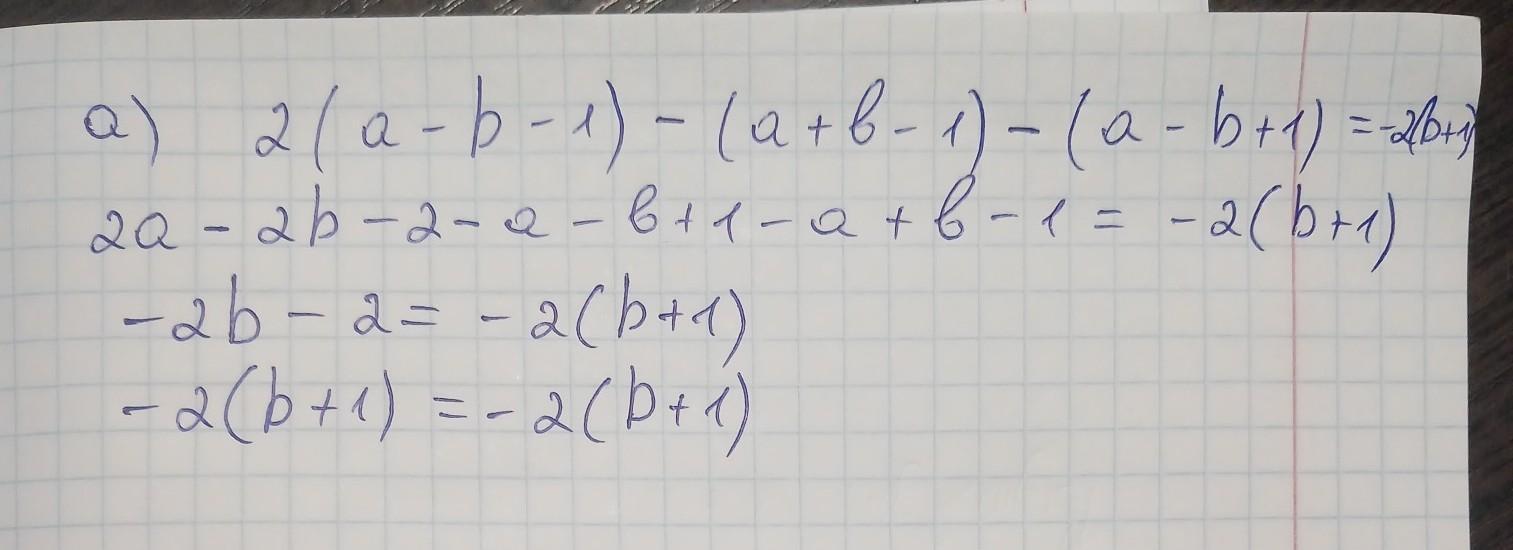 а) 2(a - b - 1) - (a + b - 1) - (a - b + 1) = -2(b+1)
2a - 2b - 2 - a - b + 1 - a + b - 1 = -2(b+1)
-2b - 2 = -2(b+1)
-2(b+1) = -2(b+1)